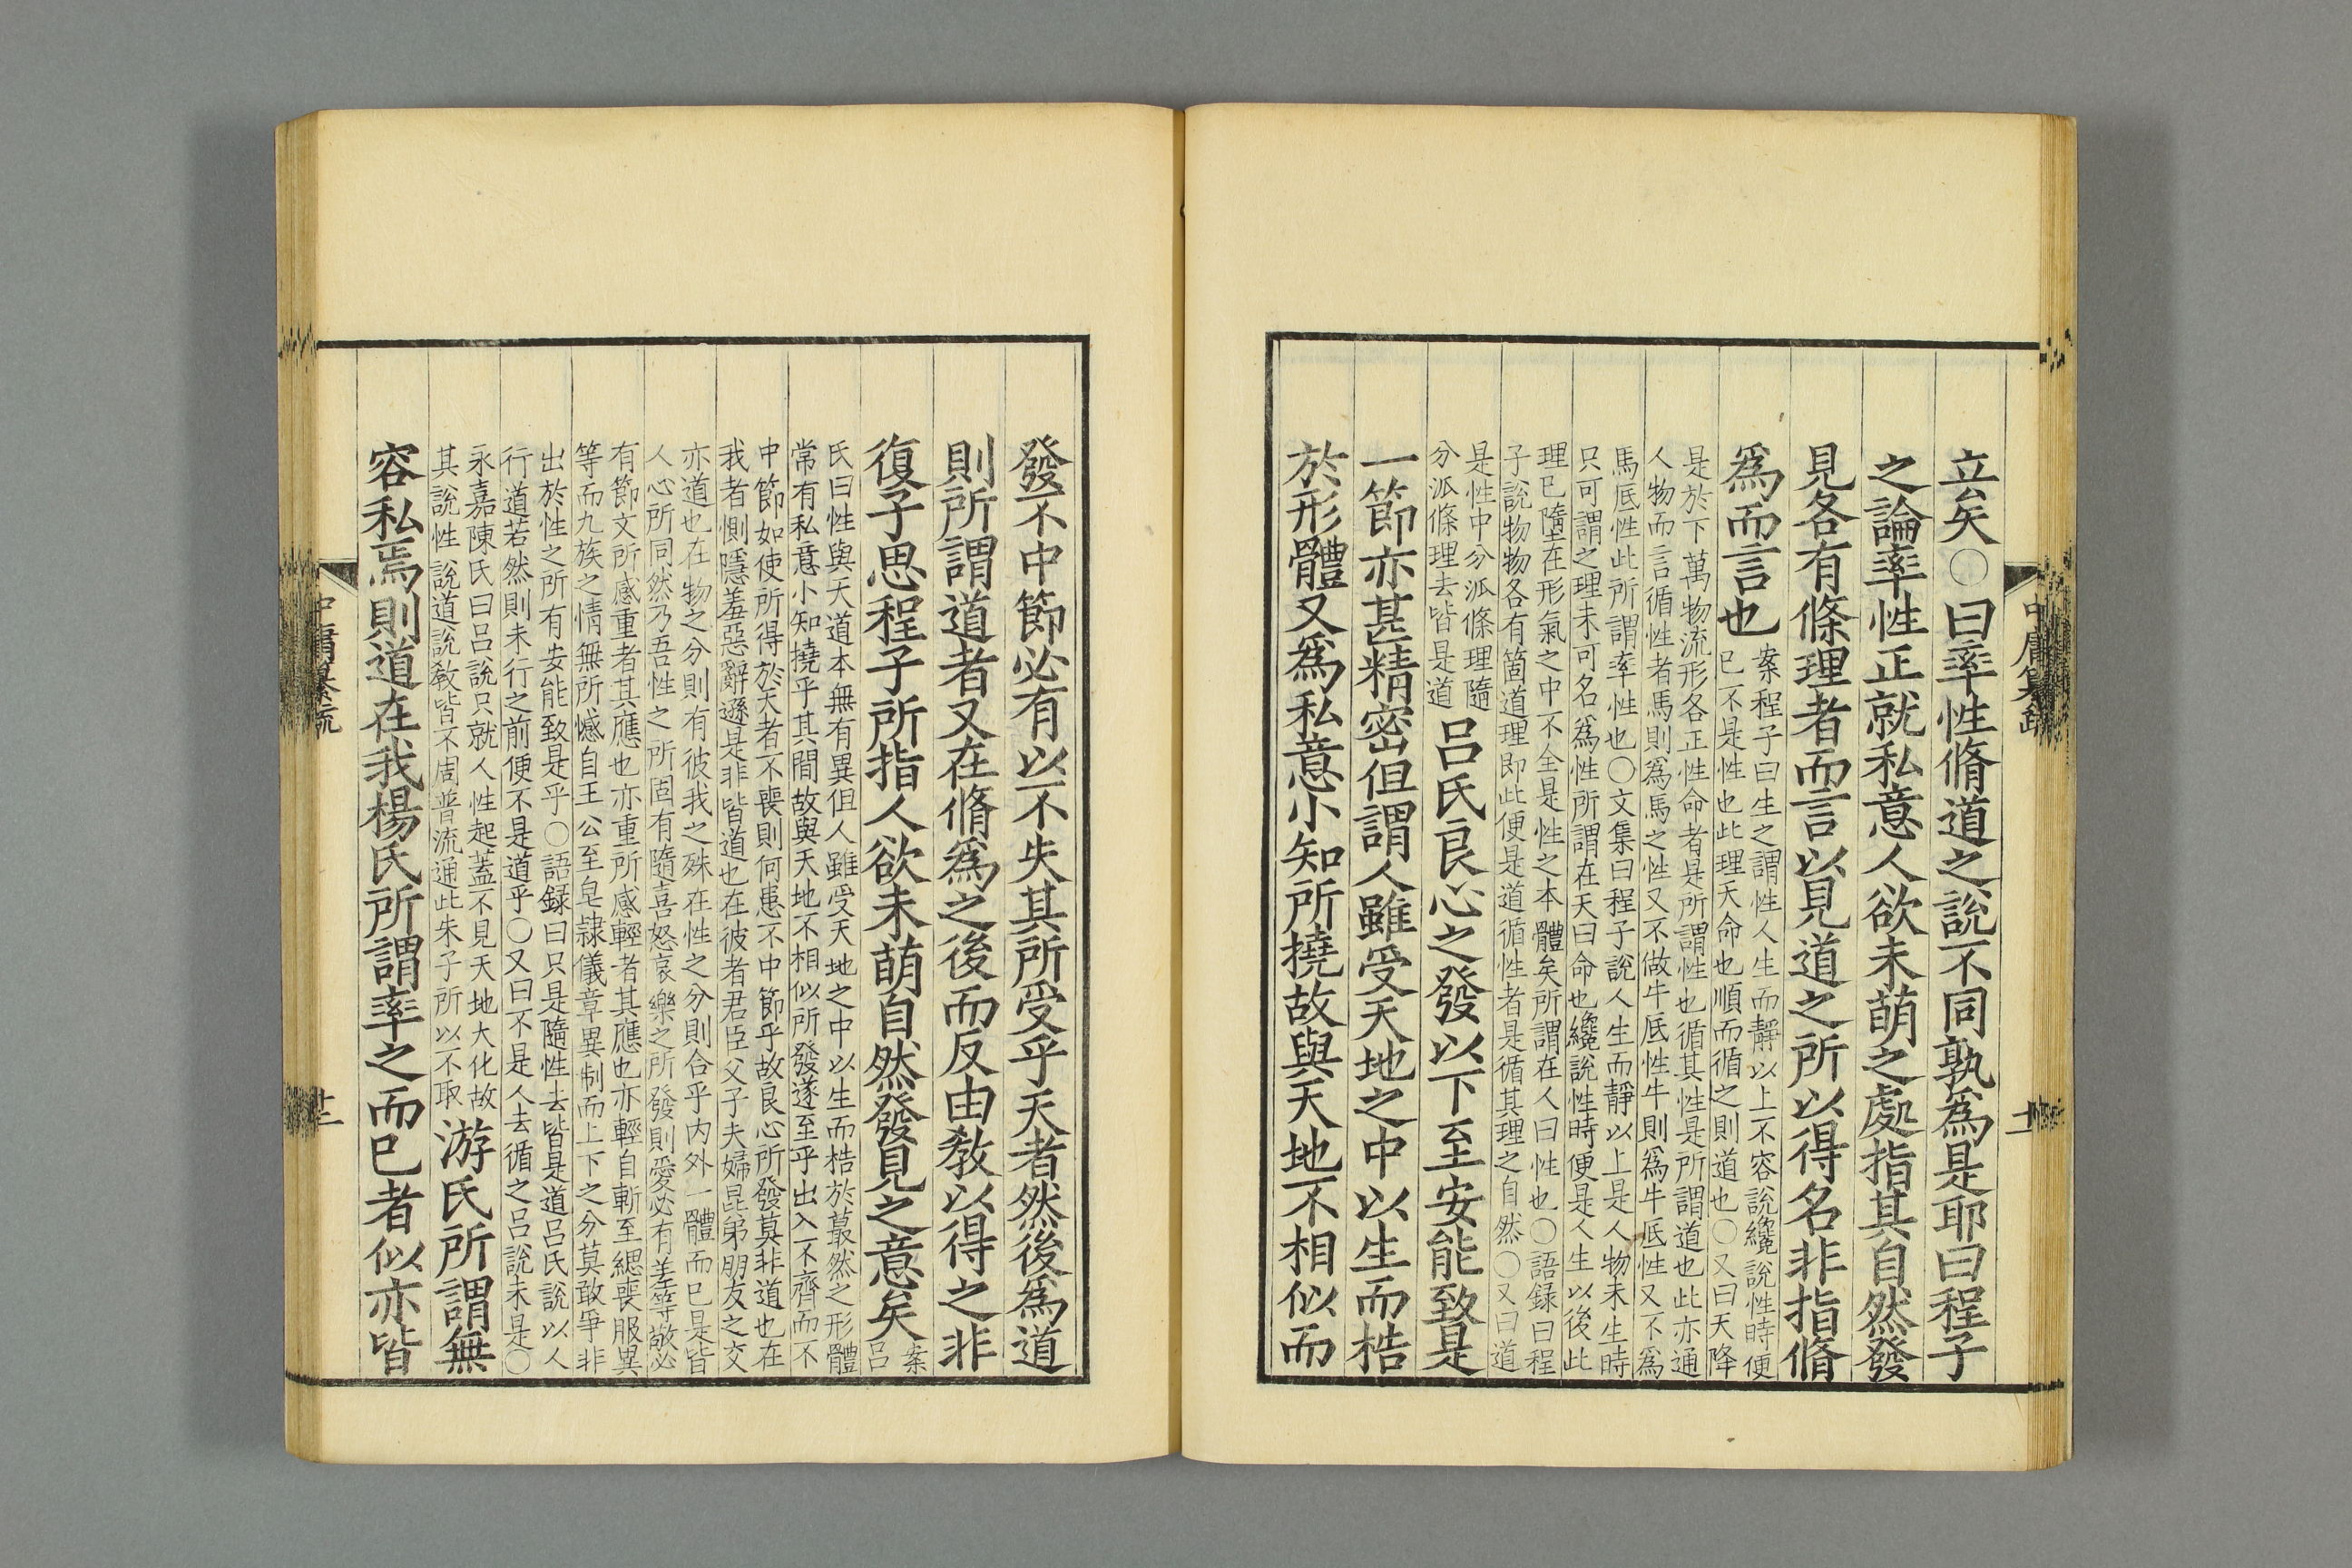 立矣○曰率性脩道之説不同孰爲是耶曰程子
之論率性正就私意人欲未萌之處指其自然發
見各有條理者而言以見道之所以得名非指脩
爲而言也
案程子曰生之謂性人生而靜以上不容説纔説性時便
已不是性也此理天命也順而循之則道也○又曰天降
是於下萬物流形各正性命者是所謂性也循其性是所謂道也此亦通
人物而言循性者馬則爲馬之性又不做牛底性牛則爲牛底性又不爲
馬底性此所謂率性也○文集曰程子説人生而靜以上是人物未生時
只可謂之理未可名爲性所謂在天曰命也纔説性時便是人生以後此
理已墮在形氣之中不全是性之本體矣所謂在人曰性也○語録曰程
子説物物各有箇道理即此便是道循性者是循其理之自然○又曰道
是性中分派條理隨
分派條理去皆是道
呂氏良心之發以下至安能致是
一節亦甚精密但謂人雖受天地之中以生而梏
於形體又爲私意小知所撓故與天地不相似而
發不中節必有以不失其所受乎天者然後爲道
則所謂道者又在脩爲之後而反由教以得之非
復子思程子所指人欲未萌自然發見之意矣
案
呂
氏曰性與天道本無有異但人雖受天地之中以生而梏於蕞然之形體
常有私意小知撓乎其間故與天地不相似所發遂至乎出入不齊而不
中節如使所得於天者不喪則何患不中節乎故良心所發莫非道也在
我者惻隱羞惡辭遜是非皆道也在彼者君臣父子夫婦昆弟朋友之交
亦道也在物之分則有彼我之殊在性之分則合乎内外一體而已是皆
人心所同然乃吾性之所固有隨喜怒哀樂之所發則愛必有差等敬必
有節文所感重者其應也亦重所感輕者其應也亦輕自斬至緦喪服異
等而九族之情無所憾自王公至皂隸儀章異制而上下之分莫敢爭非
出於性之所有安能致是乎○語録曰只是隨性去皆是道呂氏説以人
行道若然則未行之前便不是道乎○又曰不是人去循之呂説未是○
永嘉陳氏曰呂説只就人性起蓋不見天地大化故
其説性説道説教皆不周普流通此朱子所以不取
游氏所謂無
容私焉則道在我楊氏所謂率之而已者似亦皆